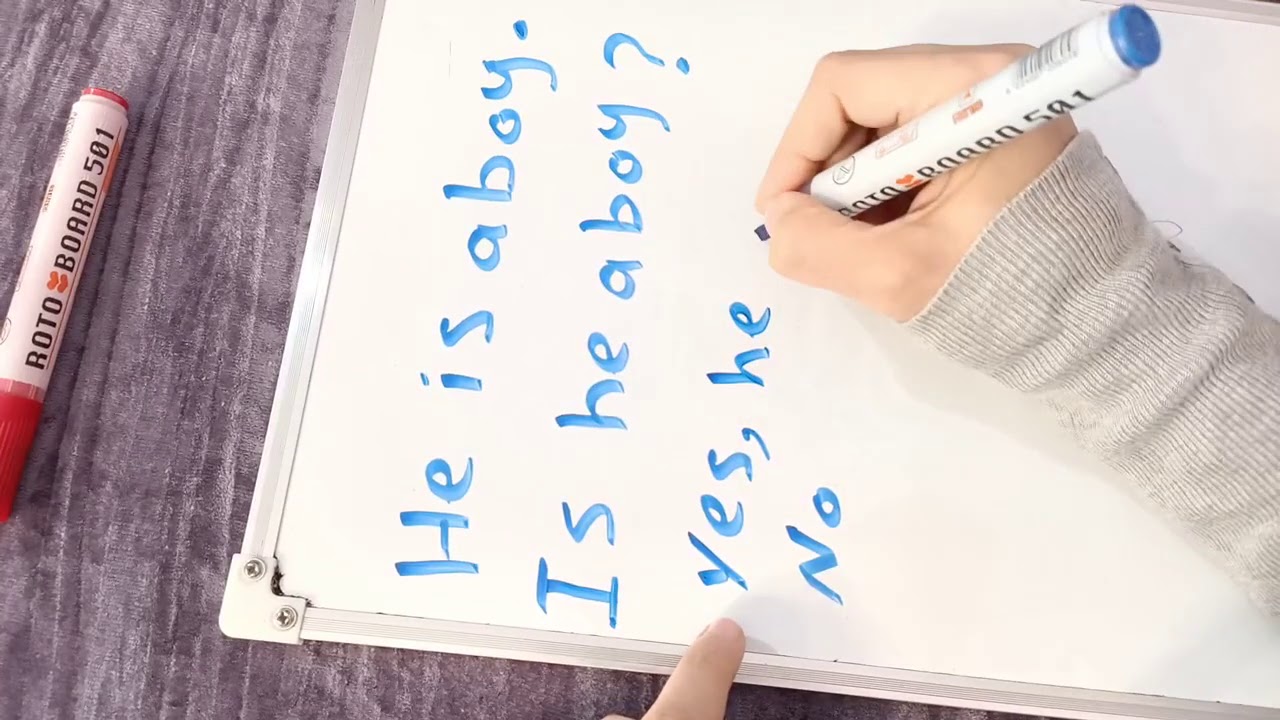 He is a boy.
Is he a boy?
Yes, he
No
ROTO BOARD 501
ROTO BOARD 501